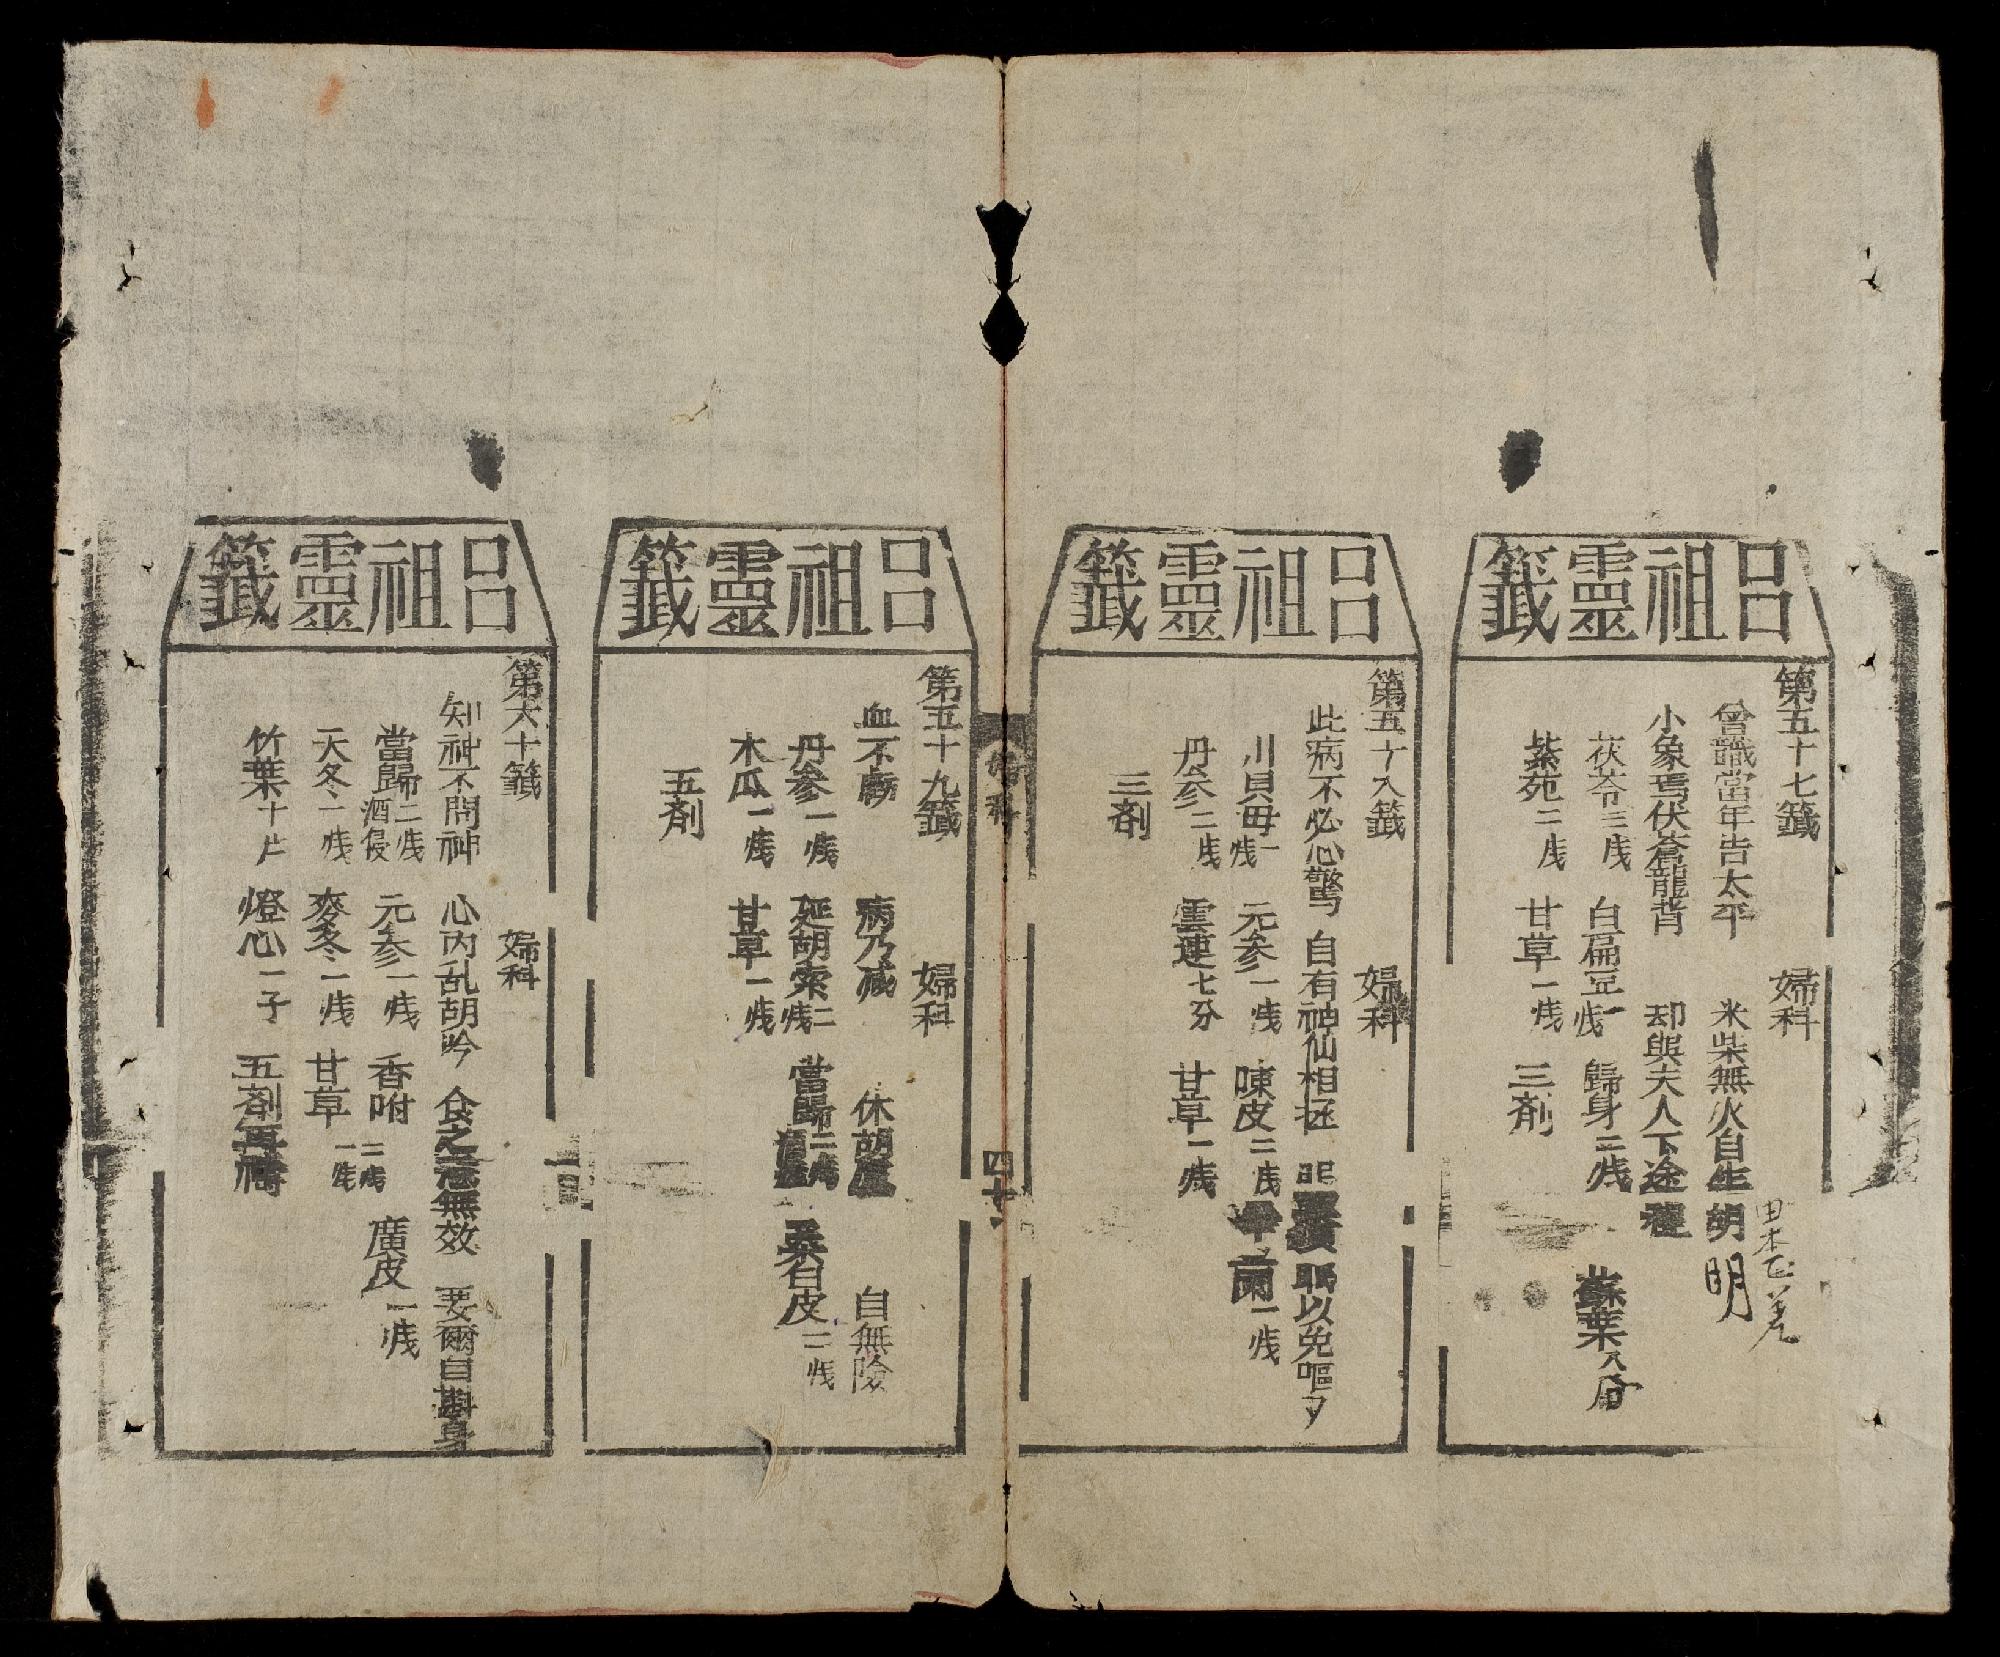 呂祖靈籤
第五十七籤 婦科
曾識當年告太平 米柴無火自生胡明
小象焉伏蒼龍背 却與夫人下途程
茯苓三戋 白扁豆一戋 歸身二戋 蘇葉八分
紫菀二戋 甘草一戋 三劑
呂祖靈籤
第五十八籤 婦科
此病不必心驚 自有神仙相拯 以免嘔
川貝母一戋 元参一戋 陳皮二戋 一戋
丹参二戋 雲連七分 甘草一戋
三劑
婦科
四十八
呂祖靈籤
第五十九籤 婦科
血不虧 病乃減 休胡 自無險
丹参一戋 延胡索二戋 當歸二戋 桑白皮二戋
木瓜一戋 甘草一戋
五劑
呂祖靈籤
第六十籤 婦科
知神不問神 心内乱胡吟 食之無效 要爾自斟身
當歸二戋酒侵 元参一戋 香咐二戋 廣皮一戋
天冬一戋 麥冬一戋 甘草一戋
竹葉十片 燈心一子 五劑再禱